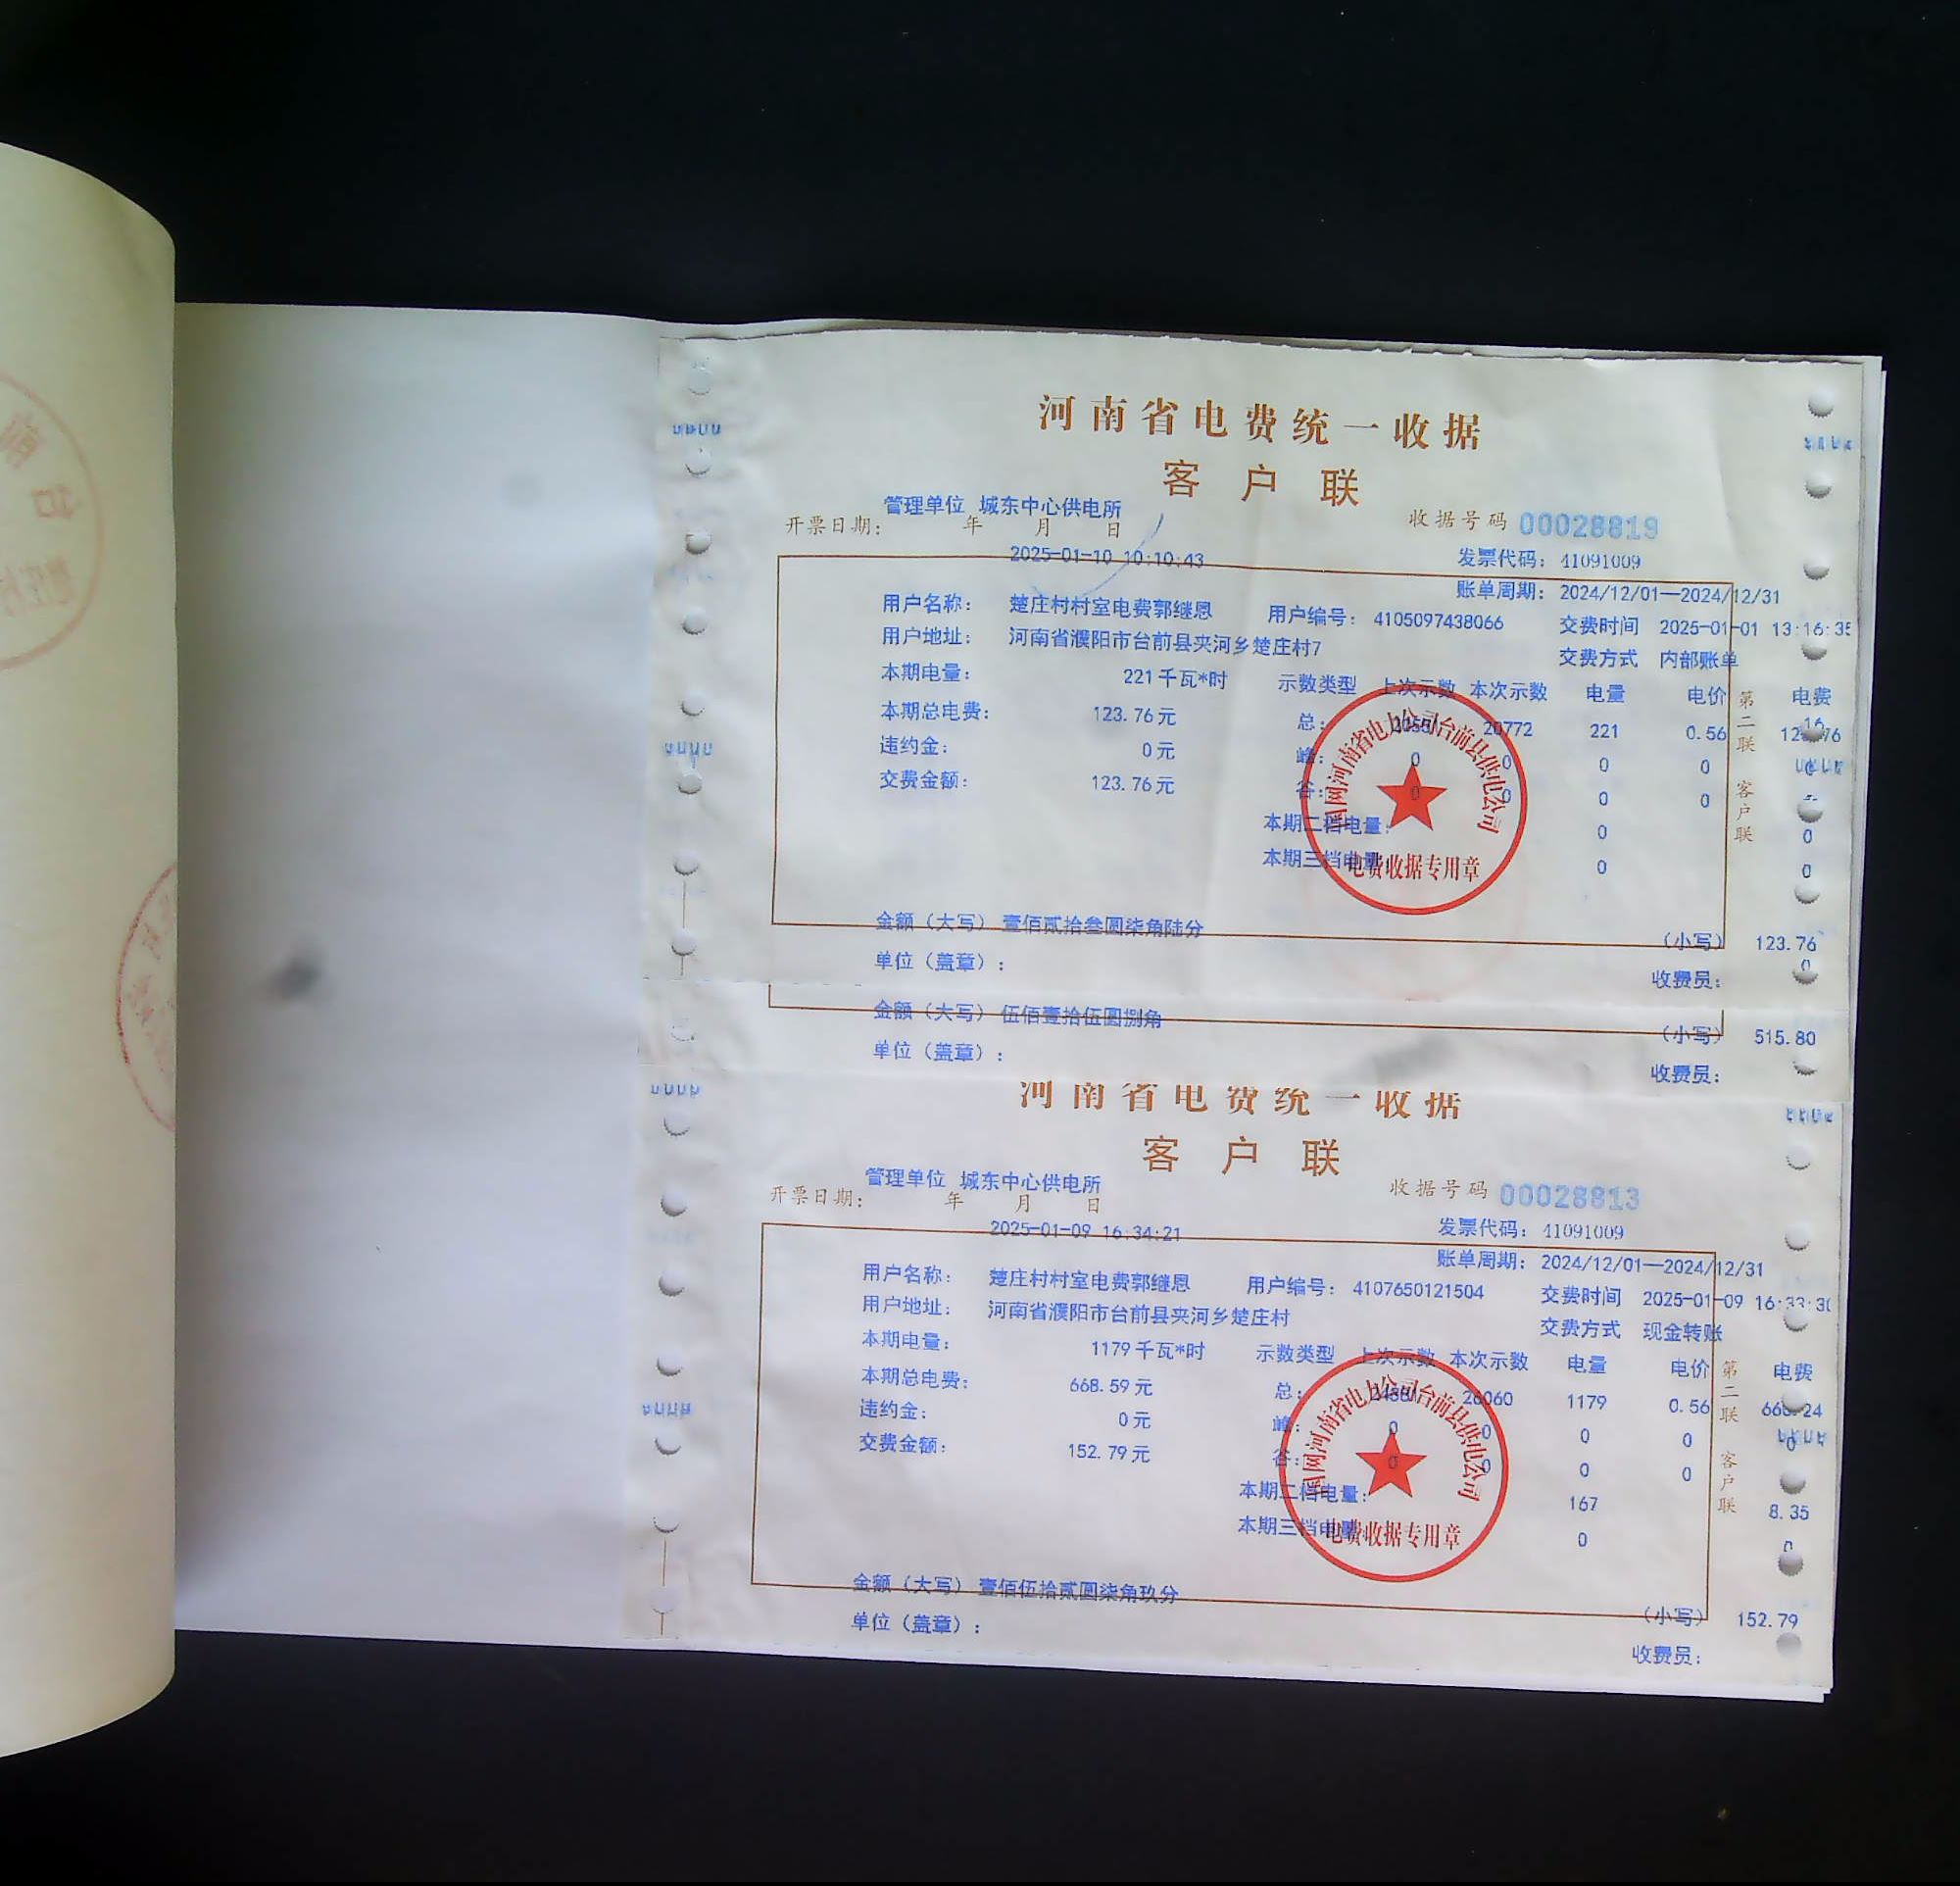 河南省电费统一收据
客户联
管理单位 城东中心供电所
开票日期: 年 月 日 收据号码 00028819
2025-01-10 10:10:43 发票代码: 41091009
账单周期: 2024/12/01—2024/12/31
用户名称: 楚庄村村室电费郭继恩 用户编号: 4105097438066 交费时间 2025-01-01 13:16:35
用户地址: 河南省濮阳市台前县夹河乡楚庄村7 交费方式 内部账单
本期电量: 221千瓦*时 示数类型 上次示数 本次示数 电量 电价 电费
本期总电费: 123.76元 总: 20772 221 0.56
违约金: 0元 峰: 0 0 0 0
交费金额: 123.76元 谷: 0 0 0 0
本期二档电量: 0 0
本期三档电量: 0 0
第二联 客户联
国网河南省电力公司台前县供电公司
电费收据专用章
金额（大写） 壹佰贰拾叁圆柒角陆分 （小写） 123.76
单位（盖章）: 收费员:
金额（大写） 伍佰壹拾伍圆捌角 （小写） 515.80
单位（盖章）: 收费员:
河南省电费统一收据
客户联
管理单位 城东中心供电所
开票日期: 年 月 日 收据号码 00028813
2025-01-09 16:34:21 发票代码: 41091009
账单周期: 2024/12/01—2024/12/31
用户名称: 楚庄村村室电费郭继恩 用户编号: 4107650121504 交费时间 2025-01-09 16:33:30
用户地址: 河南省濮阳市台前县夹河乡楚庄村 交费方式 现金转账
本期电量: 1179千瓦*时 示数类型 上次示数 本次示数 电量 电价 电费
本期总电费: 668.59元 总: 26060 1179 0.56
违约金: 0元 峰: 0 0 0 0 0
交费金额: 152.79元 谷: 0 0 0 0
本期二档电量: 167 8.35
本期三档电量: 0 0
第二联 客户联
国网河南省电力公司台前县供电公司
电费收据专用章
金额（大写） 壹佰伍拾贰圆柒角玖分 （小写） 152.79
单位（盖章）: 收费员: